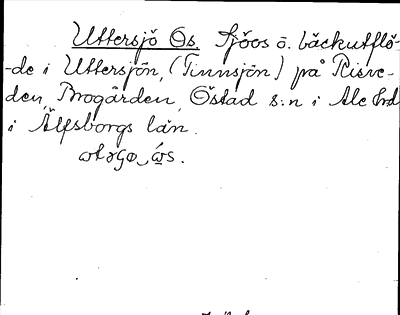 Uttersjö Os. Sjöos o. bäckutflö-
-de i Uttersjön, (Tinnsjön) på Risve-
den, Brogärden, Östad s:n i Ale hd
i Älfsborgs län.